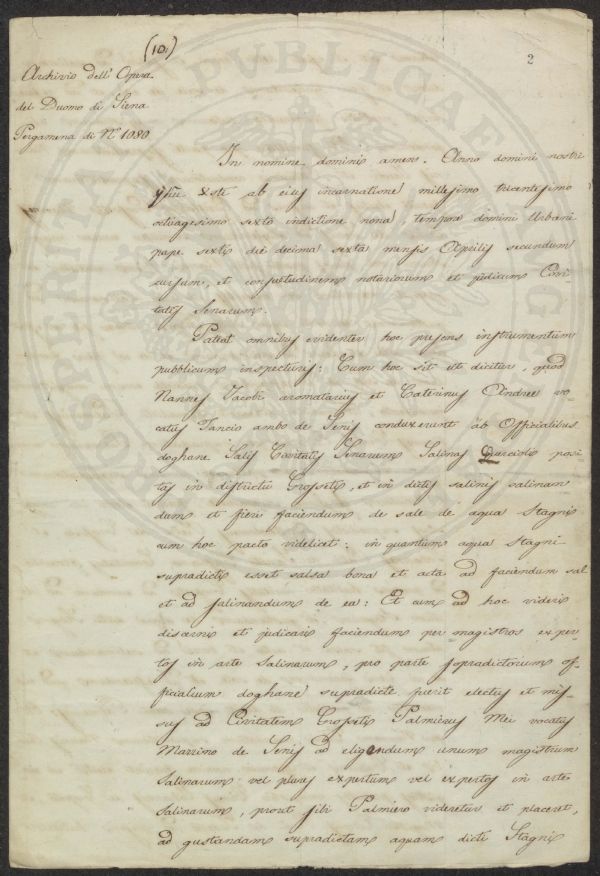 (10)
2
Archivio dell' Opera
del Duomo di Siena
Pergamena di Nº 1080
In nomine dominis amen. Anno domini nostri
yhu xsti ab eius incarnatione millesimo tricentesimo
octuagesimo sexto indictione nona, tempore domini Urbani
pape sexti die decima sexta mensis Aprilis secundum
cursum, et consuetudinem notariorum et judicum Civi-
tatis Senarum.
Pateat omnibus evidenter hoc presens instrumentum
pubblicum inspecturis: Cum hoc sit ut dicitur, quod
Nannes Jacobi aromatarius et Caterinus Andree vo-
catus Tancio ambo de Senis conduxerunt ab Officialibus
doghane Salis Civitatis Senarum Salinas Querciole posi
tas in districtu Grosseti, et in dictis salinis salinan
dum et fieri faciendum de sale de aqua Stagni
cum hoc pacto videlicet: in quantum aqua Stagni
supradicti esset salsa bona et acta ad faciendum sal
et ad salinandum de ea: Et cum ad hoc videri
discerni et judicari faciendum per magistros exper
tos in arte Salinarum, pro parte sopradictorum of-
ficialium doghane supradicte fuerit electus et mis-
sus ad Civitatem Grosseti Palmerius Mei vocatus
Mazzino de Senis ad eligendum unum magistrum
Salinarum vel plures expertum vel expertos in arte
Salinarum, prout sibi Palmiero videretur et placeret,
ad gustandam supradictam aquam dicti Stagni